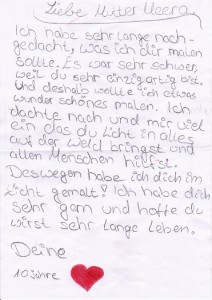 Liebe Mutter Meera
Ich habe sehr lange nach-
gedacht, was ich dir malen
sollte. Es war sehr schwer,
weil du sehr einzigartig bist.
Und deshalb wollte ich etwas
wunder schönes malen. Ich
dachte nach und mir viel
ein das du Licht in alles
auf der Weld bringst und
allen Menschen hilfst.
Deswegen habe ich dich im
Licht gemalt! Ich habe dich
sehr gern und hoffe du
wirst sehr lange leben.
Deine
10 Jahre